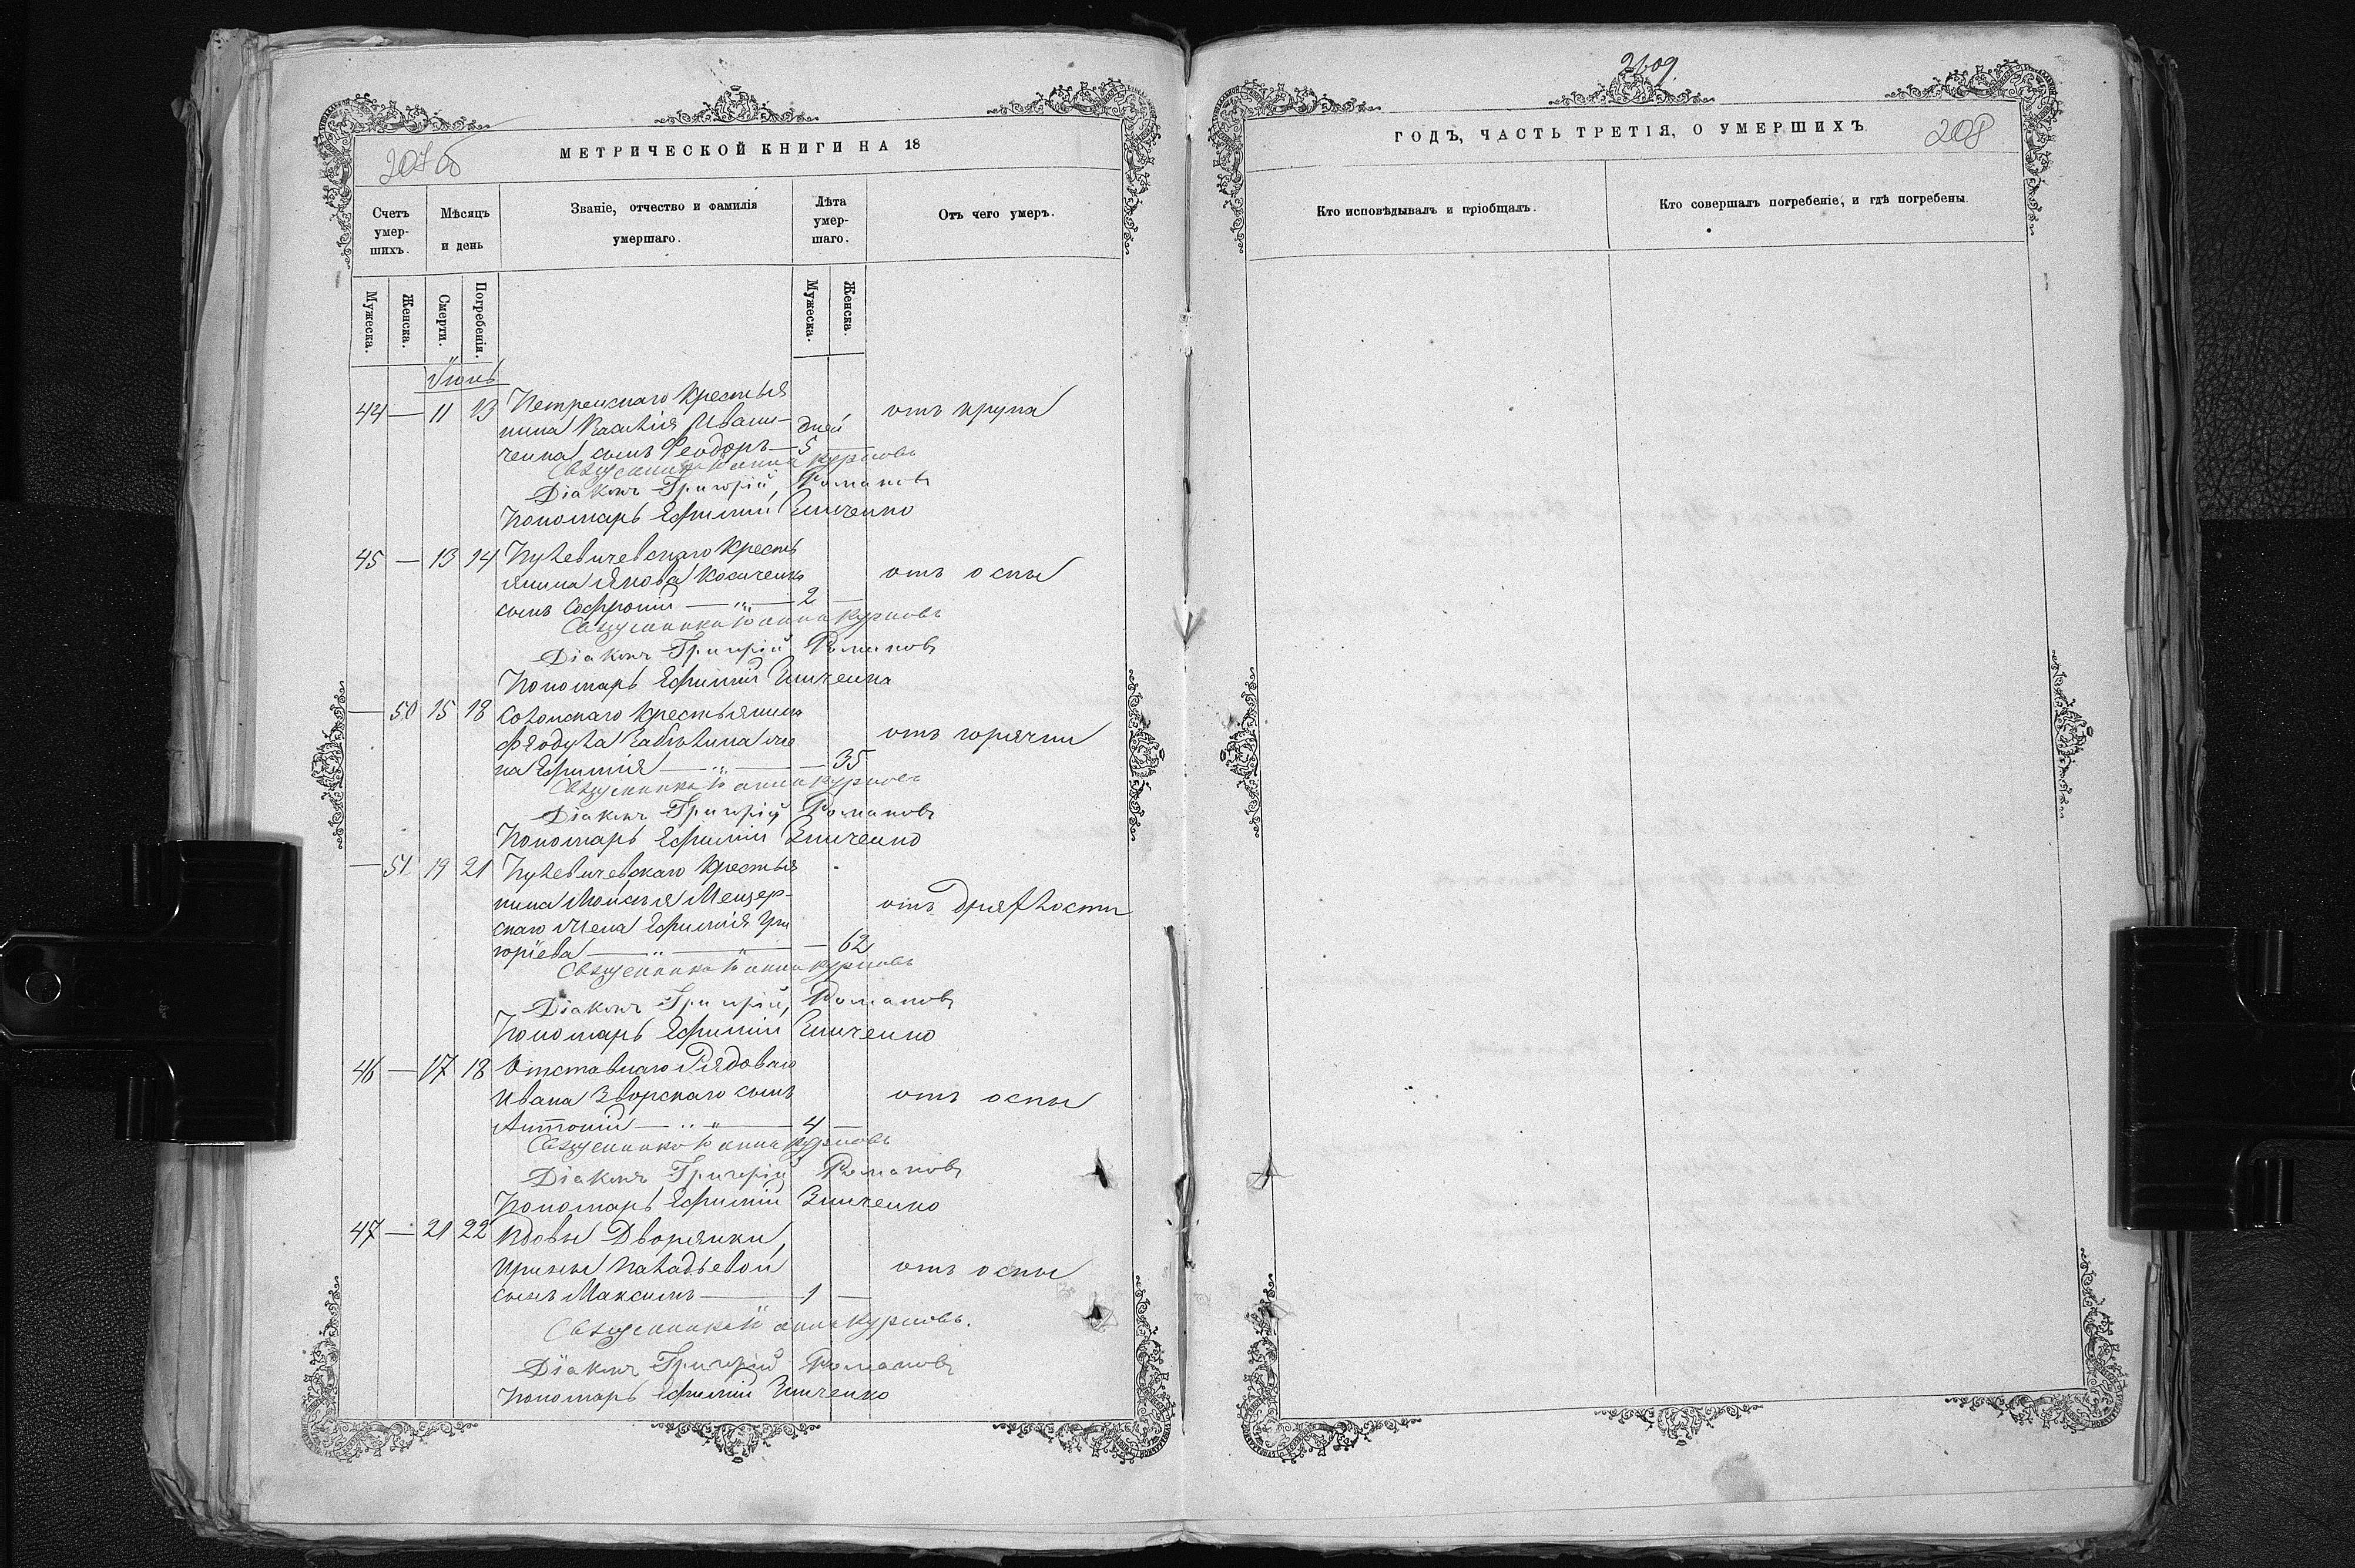 207об
МЕТРИЧЕСКОЙ КНИГИ НА 18
Счетъ умер-шихъ.
Мѣсяцъ и день
Званіе, отчество и фамилія умершаго.
Лѣта умер-шаго.
Отъ чего умеръ.
Мужеска.
Женска.
Смерти.
Погребенія.
Мужеска.
Женска.
Іюнь
44 — 11 13 крестья
нина Василія Иваш- дней отъ крупа
ченка сынъ Ѳеодоръ — 5 —
Священникъ Іоаннъ Курловъ
Діаконъ Григорій Романовъ
Пономарь Ефимій Зинченко
45 — 13 14 Кулевичевскаго кресть
янина Якова Косиченка отъ оспы
сынъ Софроній — „ — 2 —
Священникъ Іоаннъ Курловъ
Діаконъ Григорій Романовъ
Пономарь Ефимій Зинченко
— 50 15 18 крестьянина
жe отъ горячки
на Ефимія — „ — — 35
Священникъ Іоаннъ Курловъ
Діаконъ Григорій Романовъ
Пономарь Ефимій Зинченко
— 51 19 21 Кулевичевскаго крестья
нина Моисея Мещер-
скаго жена Ефимія Гри отъ дряхлости
горіева — „ — „ — — 62
Священникъ Іоаннъ Курловъ
Діаконъ Григорій Романовъ
Пономарь Ефимій Зинченко
46 — 17 18 Отставнаго Рядоваго
Ивана Зворскаго сынъ отъ оспы
Антоній — „ — 4 —
Священникъ Іоаннъ Курловъ
Діаконъ Григорій Романовъ
Пономарь Ефимій Зинченко
47 — 21 22 Вдовы Дворянки
Ирины Паладьевой отъ оспы
сынъ Максимъ — 1 —
Священникъ Іоаннъ Курловъ.
Діаконъ Григорій Романовъ
Пономарь Ефимій Зинченко
2609
ГОДЪ, ЧАСТЬ ТРЕТІЯ, О УМЕРШИХЪ
208
Кто исповѣдывалъ и пріобщалъ.
Кто совершалъ погребеніе, и гдѣ погребены.